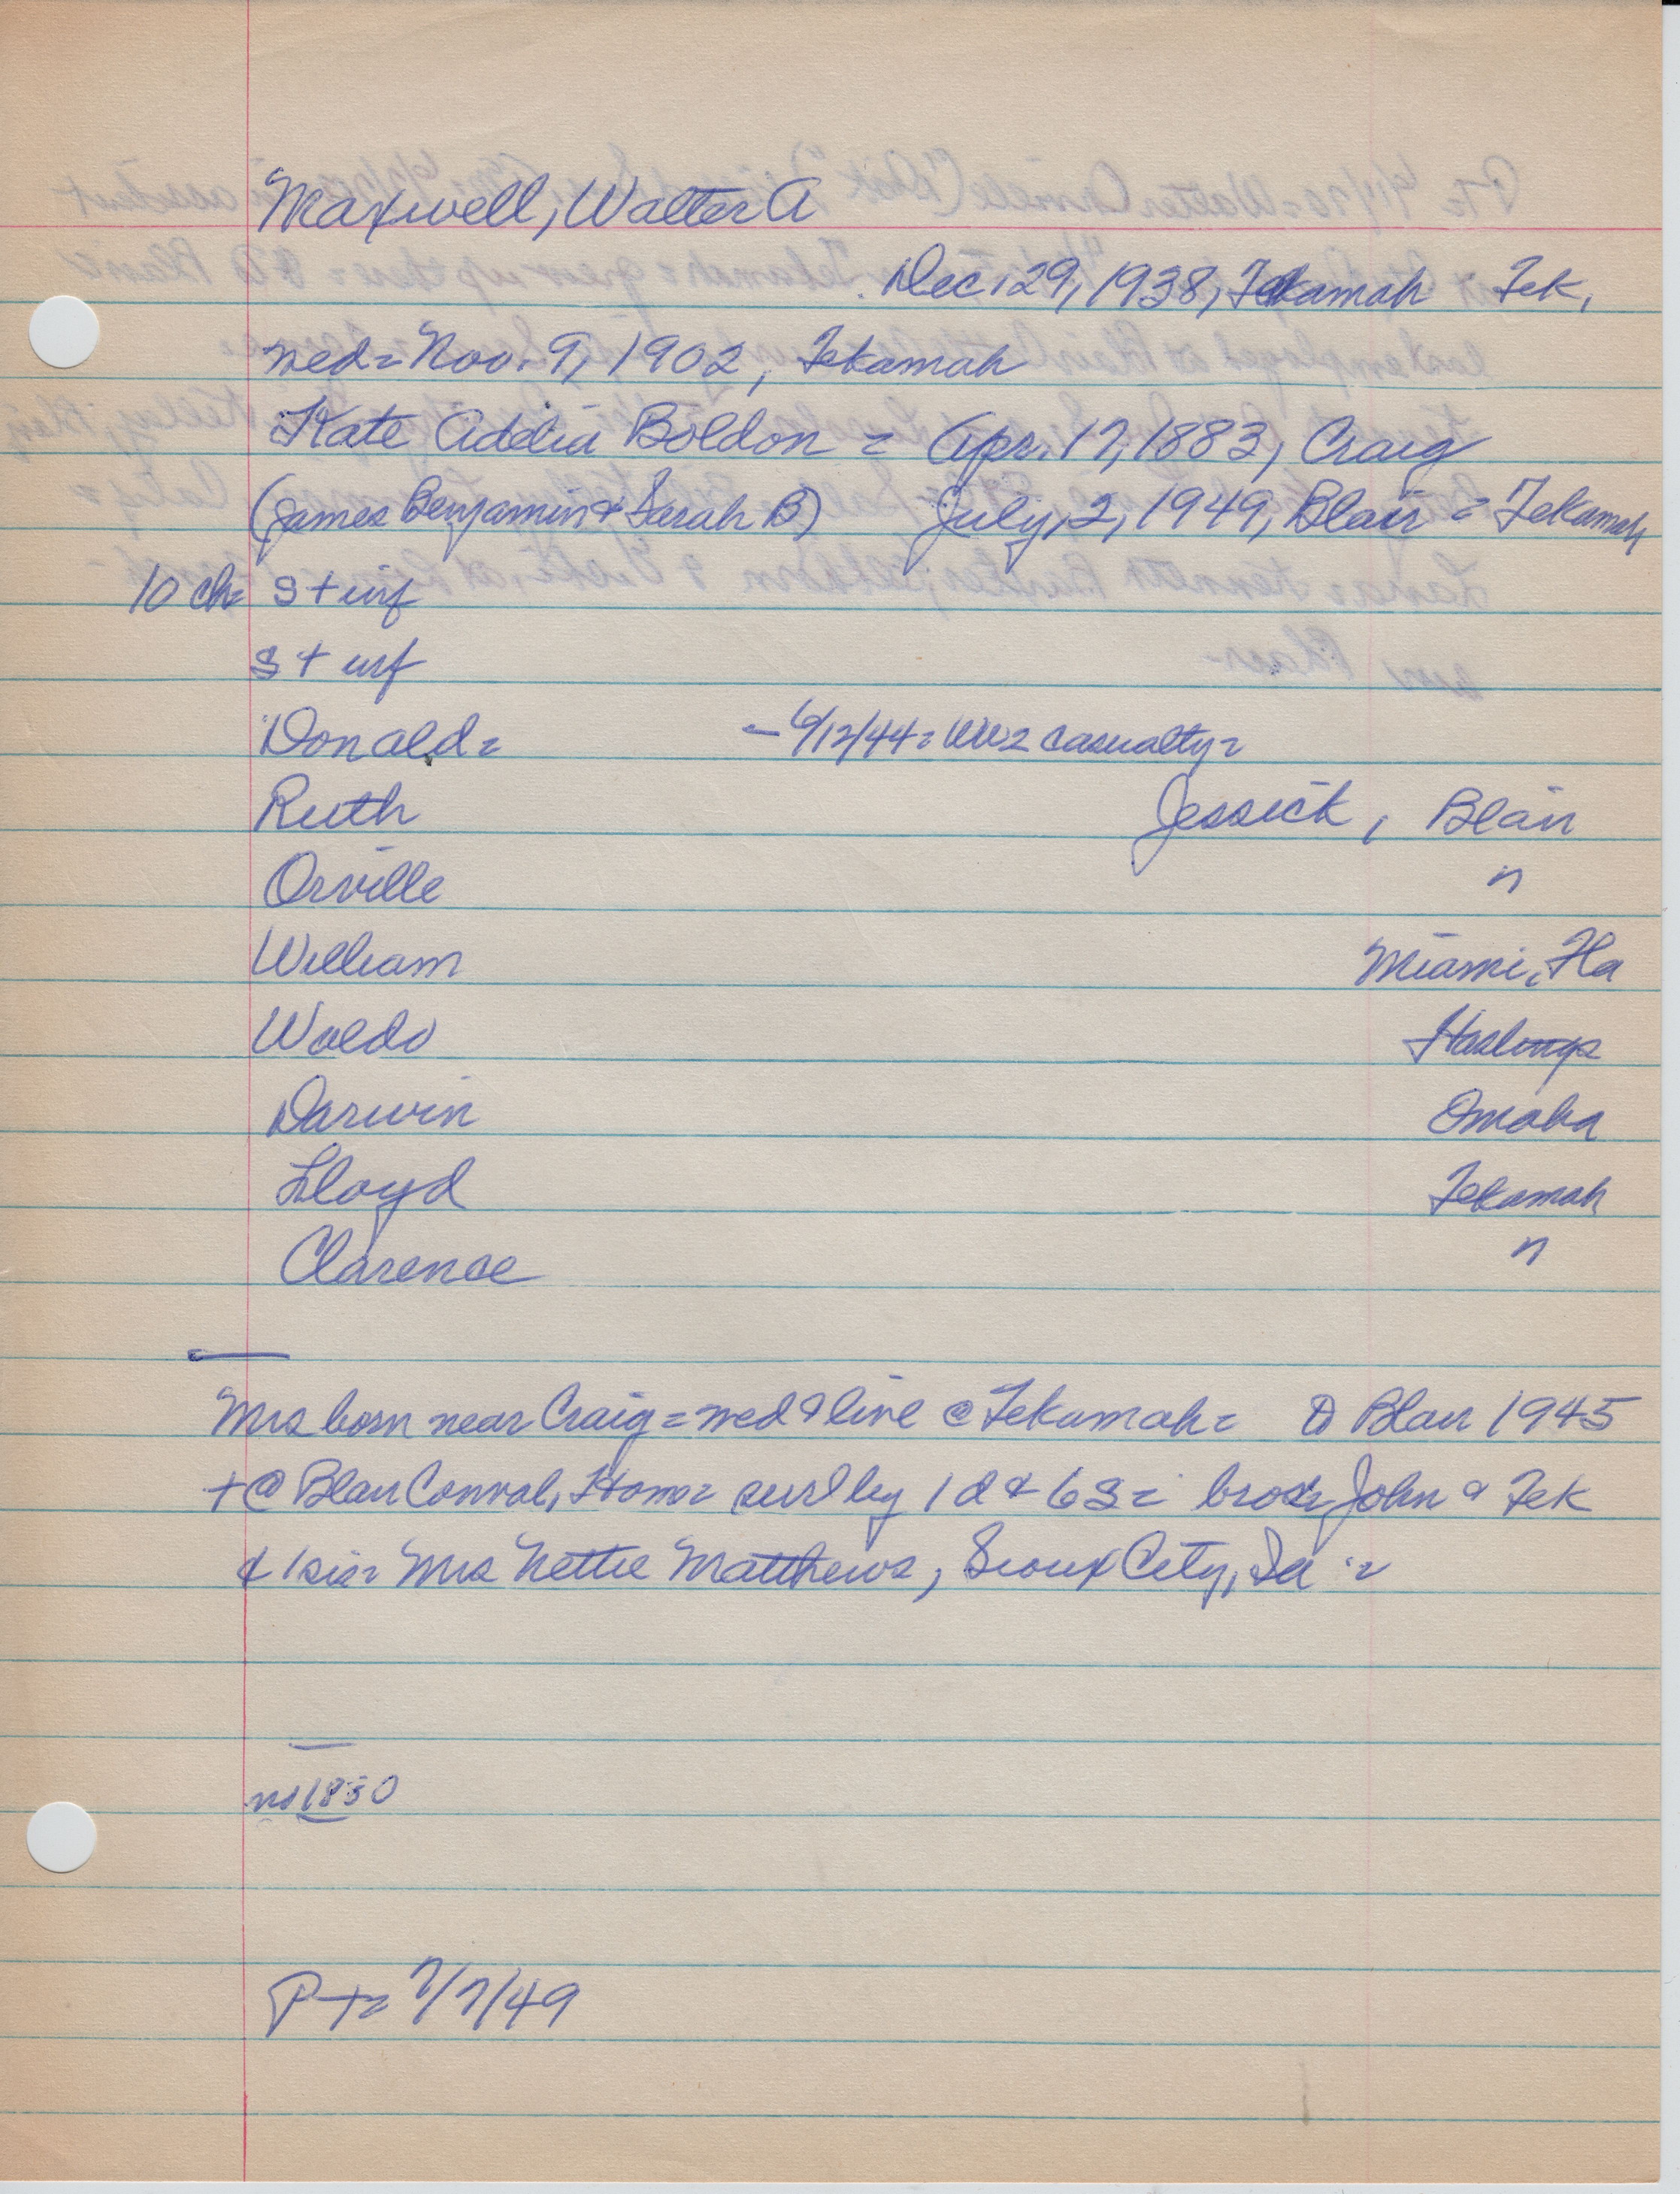 Maxwell, Walter A
Dec. 29, 1938, Tekamah Tek,
wed = Nov. 9, 1902, Tekamah
Kate Addia Boldon = Apr. 17, 1883, Craig
(James Benjamin & Sarah B) July, 2, 1949, Blair = Tekamah
10 ch = S + inf
S + inf
Donald = - 6/12/44 = WW2 casualty =
Ruth Jessick, Blair
Orville "
William Miami, Fla
Waldo Hastings
Darwin Omaha
Lloyd Tekamah
Clarence "
Mrs born near Craig = wed & live @ Tekamah = Blair 1945
+ @ Blair Conval, Home = surv by 1 d & 6 S = bros = John @ Tek
& 1 sis = Mrs Nettie Matthews, Sioux City, Ia =
1830
P T = 7/7/49